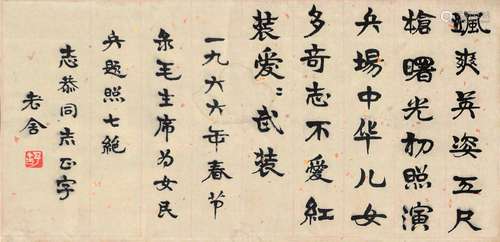 颯爽英姿五尺
槍曙光初照演
兵場中华儿女
多奇志不愛紅
装愛〻武装
一九六六年春节
录毛主席为女民
兵题照七絕
志恭同志正字
老舍